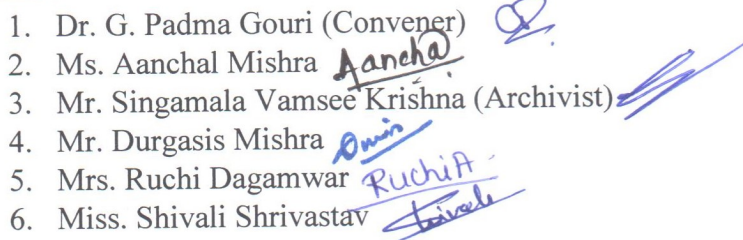 1. Dr. G. Padma Gouri (Convener)
2. Ms. Aanchal Mishra Aancha
3. Mr. Singamala Vamsee Krishna (Archivist)
4. Mr. Durgasis Mishra
5. Mrs. Ruchi Dagamwar RuchiA
6. Miss. Shivali Shrivastav